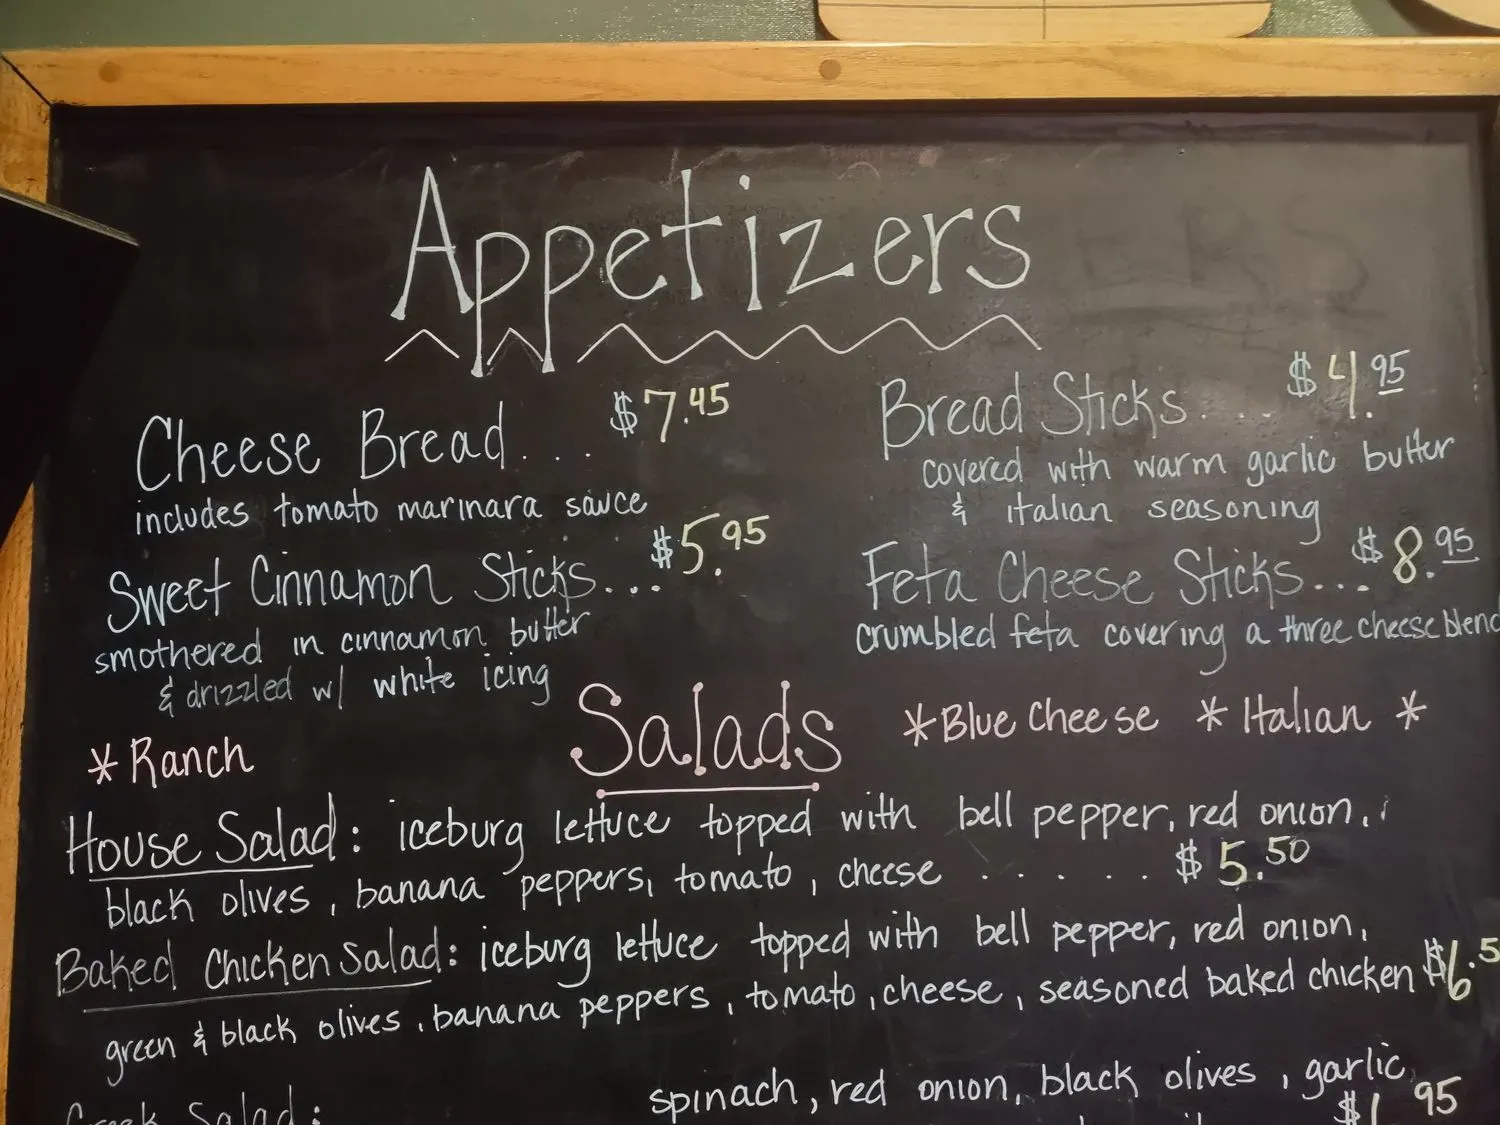 Appetizers
Cheese Bread... $7.45
includes tomato marinara sauce
Sweet Cinnamon Sticks... $5.95
smothered in cinnamon butter
& drizzled w/ white icing
Bread Sticks.... $4.95
covered with warm garlic butter
& italian seasoning
Feta Cheese Sticks... $8.95
crumbled feta covering a three cheese blend
Salads
*Ranch
*Blue Cheese *Italian *
House Salad: iceburg lettuce topped with bell pepper, red onion,
black olives, banana peppers, tomato, cheese ...... $5.50
Baked Chicken Salad: iceburg lettuce topped with bell pepper, red onion,
green & black olives, banana peppers, tomato, cheese, seasoned baked chicken $6.5
Greek Salad:
spinach, red onion, black olives, garlic,
95